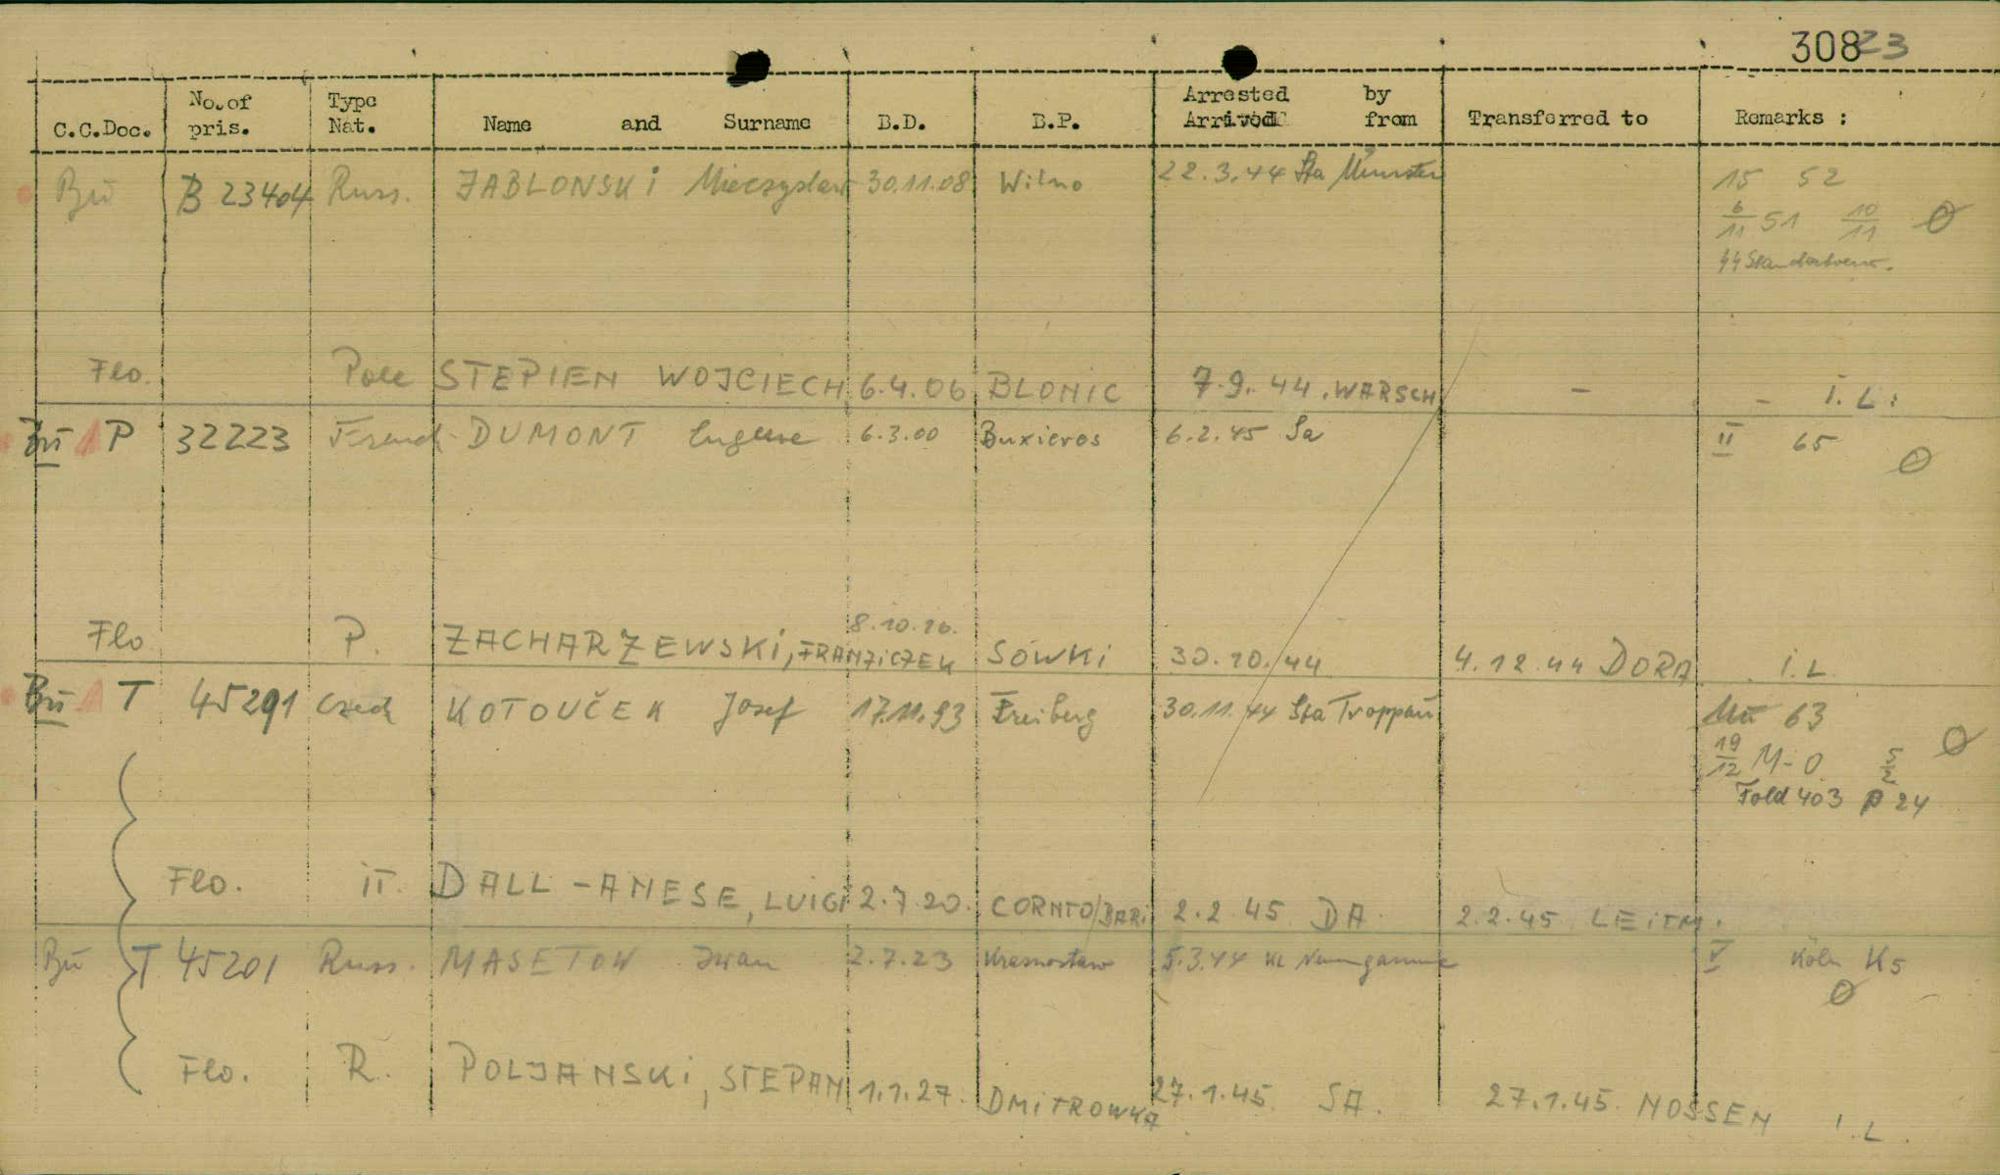 30823
C.C.Doc. No. of pris. Type Nat. Name and Surname B.D. B.P. Arrested by Arrived from Transferred to Remarks :
Bu B 23404 Russ. JABLONSKI Mieczyslaw 30.11.08 Wilno 22.3.44 Sta Münster 15 52
6/11 51 10/11 Ø
Flo. Pole STEPIEN WOJCIECH 6.4.06 BLONIC 7.9.44. WARSCH - - I.L.
Bu P 32223 French DUMONT Eugene 6.3.00 Buxieres 6.2.45 Sa II 65
Ø
Flo P. ZACHARZEWSKI, FRANZICZEK 8.10.26. SOWKI 30.10.44 4.12.44 DORA I.L.
Bu T 45291 Czech KOTOUČEK Josef 17.11.93 Freiberg 30.11.44 Sta Troppau Mu 63
19/12 M-O Ø
Fold 403 P 24
Flo. IT. DALL-ANESE, LUIGI 2.7.20. CORNTO/BARI 2.2.45 DA. 2.2.45 LEITM.
Bu T 45201 Russ. MASETOW Iwan 2.7.23 Krasnostaw 5.3.44 KL Neuengamme V Köln K5
Ø
Flo. R. POLJANSKI, STEPAN 1.1.27. DMITROWKA 27.1.45 SA. 27.1.45 NOSSEN I.L.